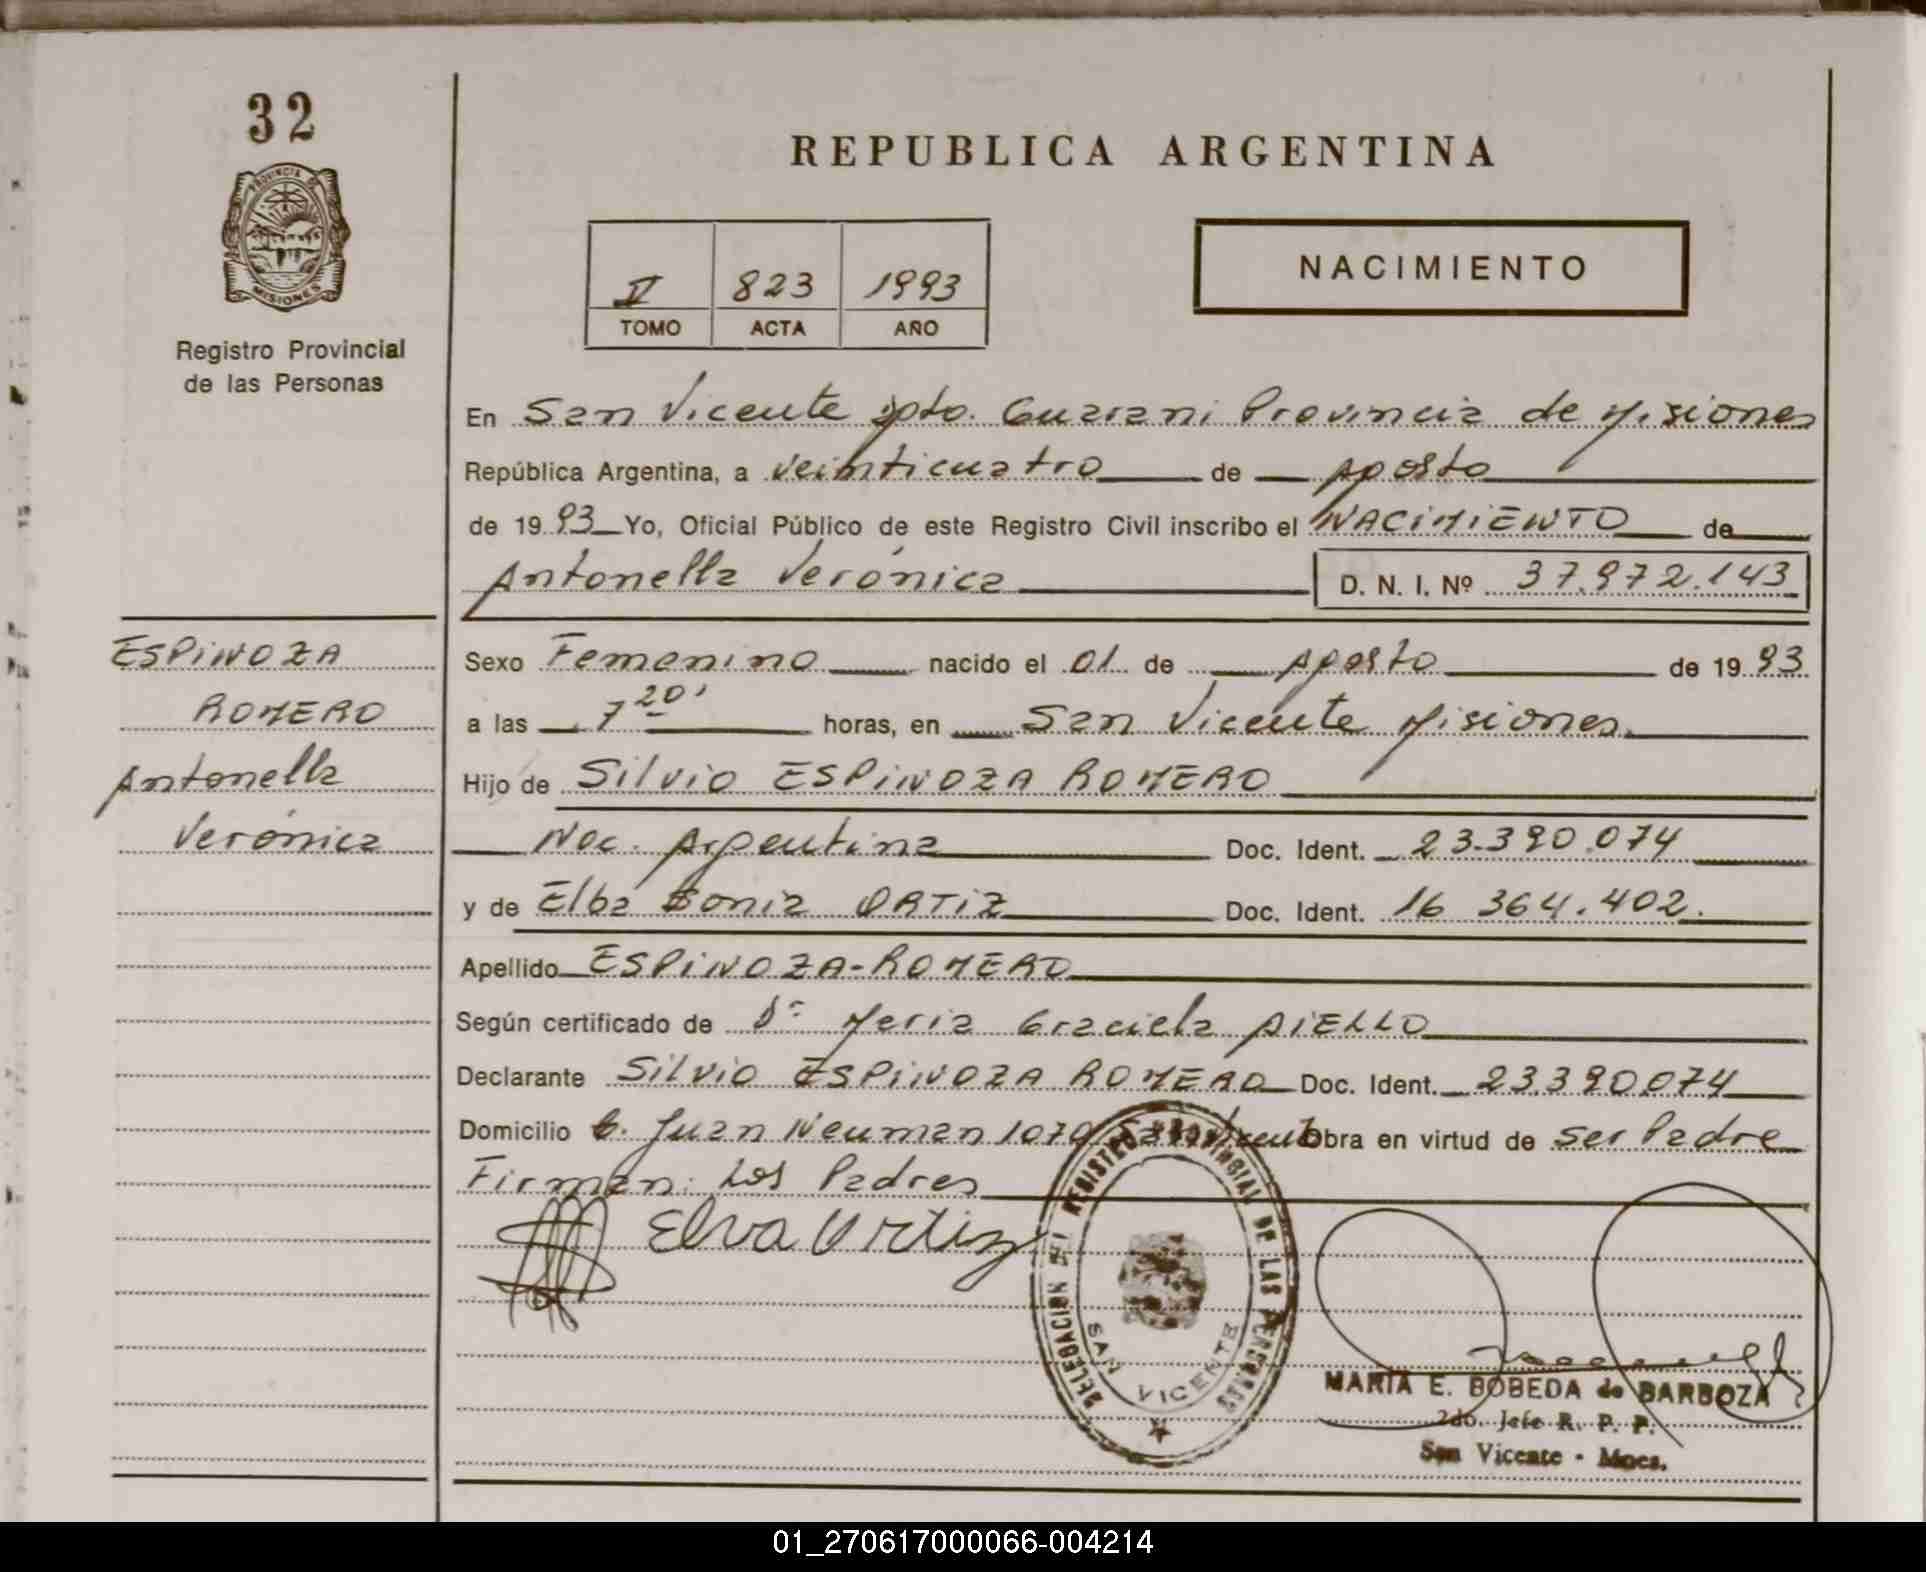 32
PROVINCIA DE
MISIONES
Registro Provincial
de las Personas
REPUBLICA ARGENTINA
V 823 1993
TOMO ACTA AÑO
NACIMIENTO
En San Vicente Dpto. Guarani Provincia de Misiones
República Argentina, a veinticuatro de Agosto
de 1993 Yo, Oficial Público de este Registro Civil inscribo el NACIMIENTO de
Antonella Verónica D. N. I. Nº 37.972.143
ESPINOZA
ROMERO
Antonella
Verónica
Sexo Femenino nacido el 01 de Agosto de 1993
a las 7 20' horas, en San Vicente Misiones
Hijo de Silvio ESPINOZA ROMERO
Nac. Argentina Doc. Ident. 23.390.074
y de Elba Sonia ORTIZ Doc. Ident. 16 364.402.
Apellido ESPINOZA-ROMERO
Según certificado de Dra Maria Graciela AIELLO
Declarante Silvio ESPINOZA ROMERO Doc. Ident. 23.390.074
Domicilio b. Juan Neuman 1070 San Vicente Obra en virtud de ser Padre
Firman: Los Padres
Elva Ortiz
DELEGACION DEL REGISTRO PROVINCIAL DE LAS PERSONAS
SAN VICENTE
MARIA E. BOBEDA de BARBOZA
2do. Jefe R. P. P.
San Vicente - Mnes.
01_270617000066-004214